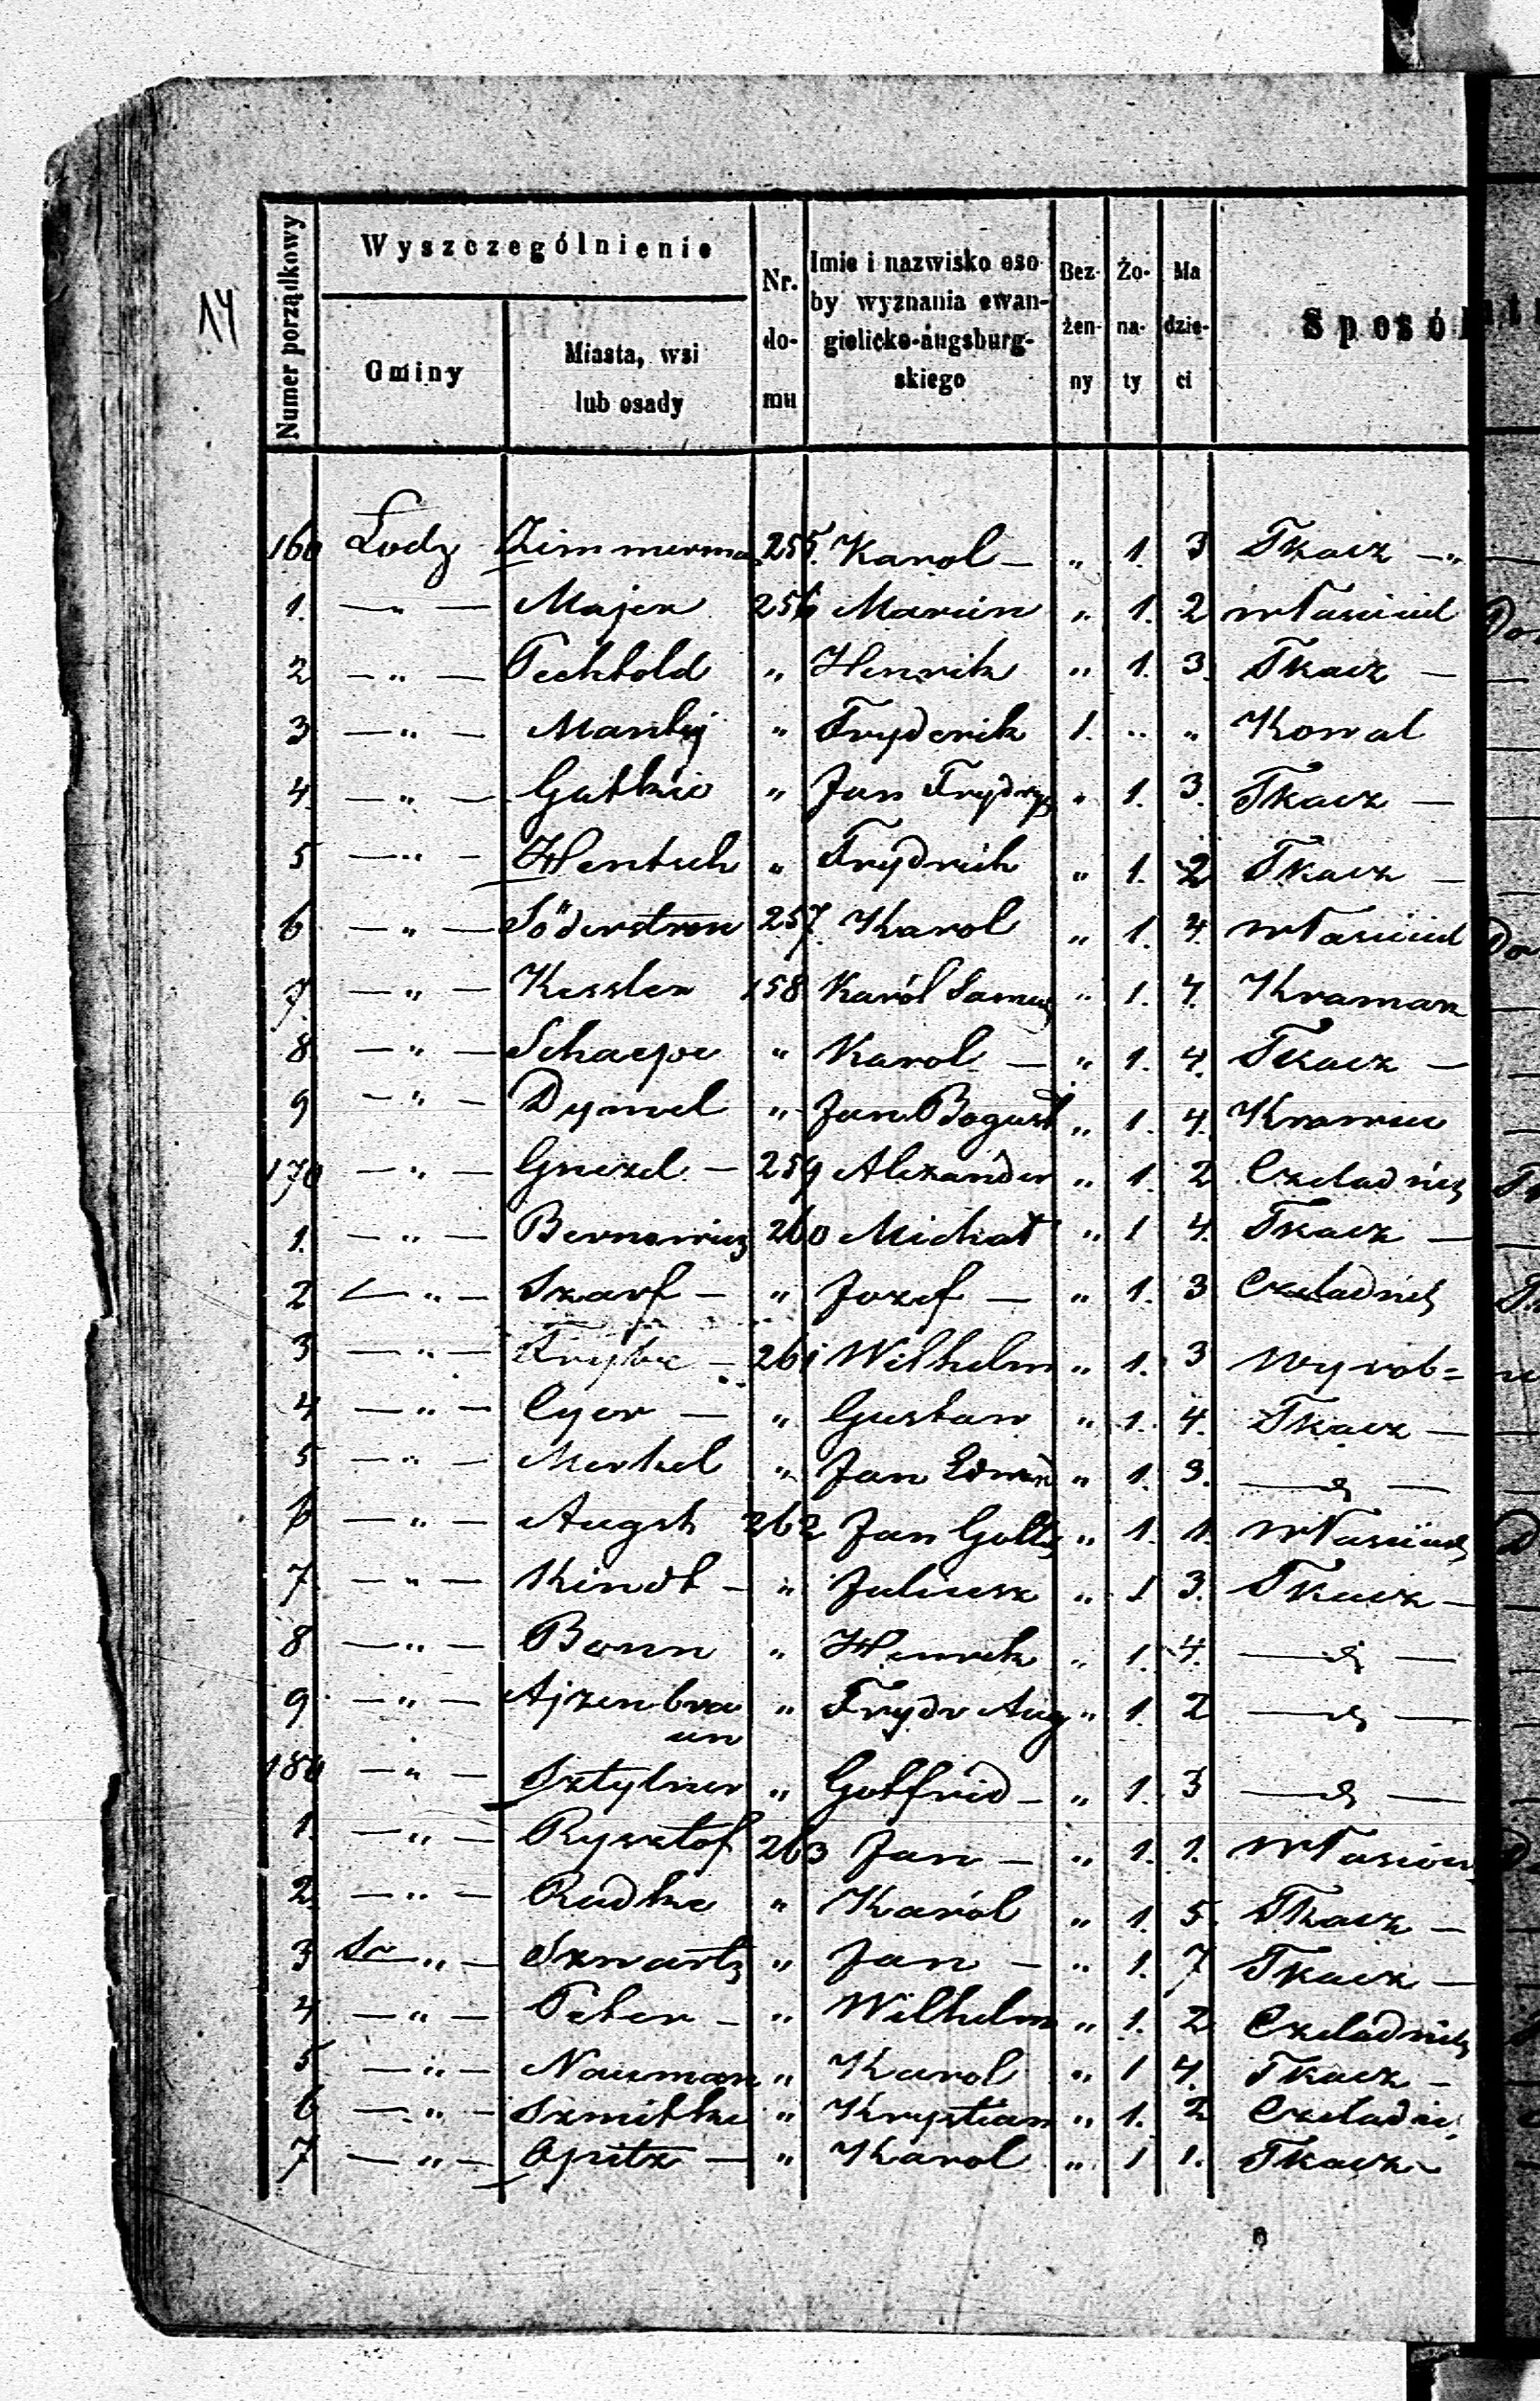 14
Numer porządkowy
Wyszczególnienie
Gminy
Miasta, wsi
lub osady
Nr.
do-
mu
Imie i nazwisko oso
by wyznania ewan-
gielicko-augsburg-
skiego
Bez-
żen-
ny
Żo-
na-
ty
Ma
dzie-
ci
Sposó
160 Łodz Zimmerma 255. Karol — „ 1. 3 Tkacz — „
1. — „ — Majer 256 Marcin „ 1. 2 właściciel
2 — „ — Pechtold „ Henrik „ 1. 3. Tkacz —
3 — „ — Mantej „ Fryderik 1. „ „ Kowal
4. — „ — Gatkie „ Jan Frydryg „ 1. 3. Tkacz —
5 — „ — Hentsch „ Frydrich „ 1. 2 Tkacz —
6 — „ — Söderstrem 257. Karol „ 1. 4. właściciel
7. — „ — Kessler 158 Karól Samuel „ 1. 4. Kramarz
8. — „ — Schaepe „ Karol — „ 1. 4. Tkacz —
9 — „ — Dymel „ Jan Bogusł „ 1. 4.
170 — „ — Gnezel — 259 Alexander „ 1. 2 Czeladnik
1. — „ — Bernowicz 260 Michał „ 1 4. Tkacz —
2 — „ — Szarf — „ Jozef — „ 1. 3 Czeladnik
3 — „ — Frybe — 261 Wilhelm „ 1. 3 Wyrob=
4 — „ — Cyer — „ Gustaw „ 1. 4. Tkacz —
5 — „ — Merkel „ Jan Edward „ 1. 3. — d —
6 — „ — Augst 262 Jan Gottl „ 1. 1. właściciel
7. — „ — Kindt — „ Juliusz „ 1 3. Tkacz —
8 — „ — Bonn „ Henrik „ 1. 4. — d —
9 — „ — Ajzenbra „ Frydr Aug „ 1. 2 — d —
un
180 — „ — Sztylner „ Gotfrid — „ 1. 3 — d —
1. — „ — Rysztof 263 Jan — „ 1. 1. właścici
2. — „ — Radke „ Karól „ 1. 5. Tkacz —
3 — „ — Szwartz „ Jan — „ 1. 7 Tkacz —
4 — „ — Peter — „ Wilhelm „ 1. 2 Czeladnik
5 — „ — Nauman „ Karol „ 1 4. Tkacz —
6 — „ — Szmitke „ Krystian „ 1. 2 Czeladni
7 — „ — Opitz — „ Karol „ 1 1. Tkacz —